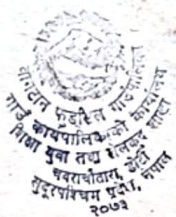 फुडसिल गाउँपालिका
गाउँ कार्यपालिकाको कार्यालय
शिक्षा युवा तथा खेलकुद शाखा
डोटी
सुदूरपश्चिम प्रदेश, नेपाल
२०७३